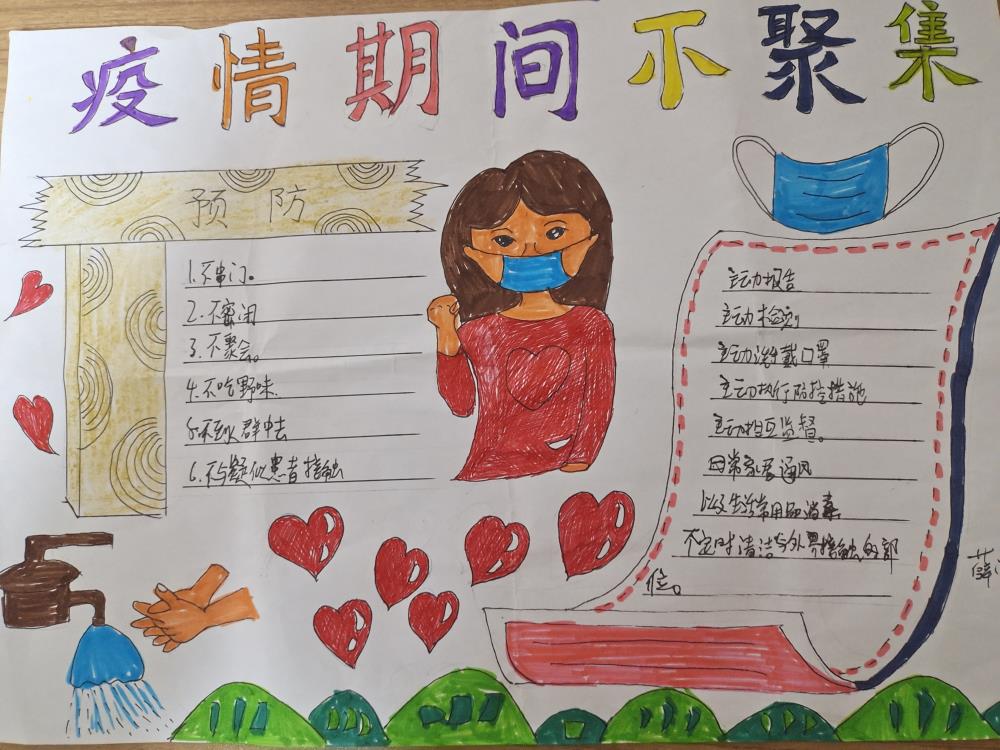 疫情期间不聚集
预防
1.不串门。
2.不密闭
3.不聚会。
4.不吃野味.
5.不到人群中去
6.不与疑似患者接触
主动报告
主动检测
主动治疗戴口罩
主动执行防控措施
主动相互监督。
日常家居通风
以及生活常用品消毒
不定时清洁与外界接触的部
位。
薛